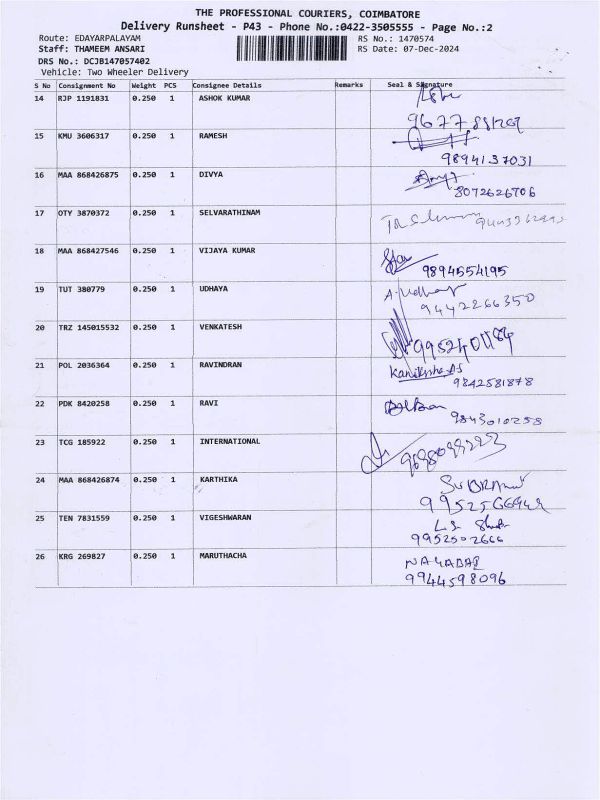 THE PROFESSIONAL COURIERS, COIMBATORE
Delivery Runsheet - P43 - Phone No.:0422-3505555 - Page No.:2
Route: EDAYARPALAYAM RS No.: 1470574
Staff: THAMEEM ANSARI RS Date: 07-Dec-2024
DRS No.: DCJB147057402
Vehicle: Two Wheeler Delivery
S No Consignment No Weight PCS Consignee Details Remarks Seal & Signature
14 RJP 1191831 0.250 1 ASHOK KUMAR
15 KMU 3606317 0.250 1 RAMESH
9894137031
16 MAA 868426875 0.250 1 DIVYA
8072626706
17 OTY 3870372 0.250 1 SELVARATHINAM
18 MAA 868427546 0.250 1 VIJAYA KUMAR
9894554195
19 TUT 380779 0.250 1 UDHAYA A. Udhaya
9442266350
20 TRZ 145015532 0.250 1 VENKATESH
21 POL 2036364 0.250 1 RAVINDRAN
9842581878
22 PDK 8420258 0.250 1 RAVI
9843010258
23 TCG 185922 0.250 1 INTERNATIONAL
24 MAA 868426874 0.250 1 KARTHIKA
25 TEN 7831559 0.250 1 VIGESHWARAN
9952502666
26 KRG 269827 0.250 1 MARUTHACHA
9944598096